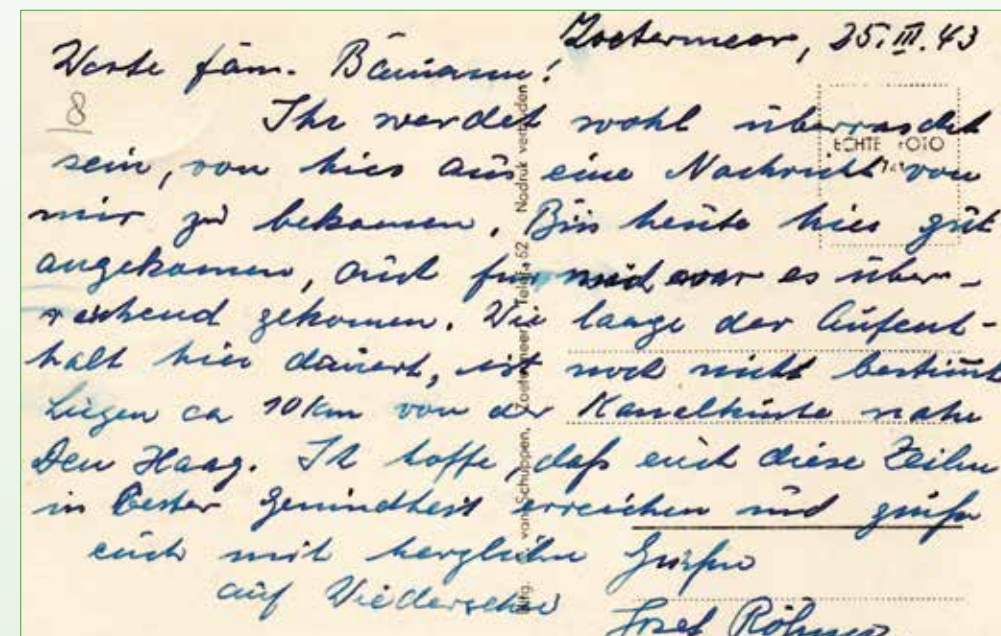 Zoetermeer, 25.III.43
Werte fam. Bäumann!
8
Ihr werdet wohl überrascht
sein, von hier aus eine Nachricht von
mir zu bekommen. Bin heute hier gut
angekommen, auch für mich war es über-
raschend gekommen. Wie lange der Aufent-
halt hier dauert, ist noch nicht bestimmt
Liegen ca 10 km von der Kanalküste nahe
Den Haag. Ich hoffe, daß euch diese Zeilen
in bester Gesundheit erreichen und grüße
euch mit herzlichen Grüßen
auf Wiedersehen
Josef
ECHTE FOTO
van Schuppen, Zoetermeer, Telef. 52 Nadruk verboden